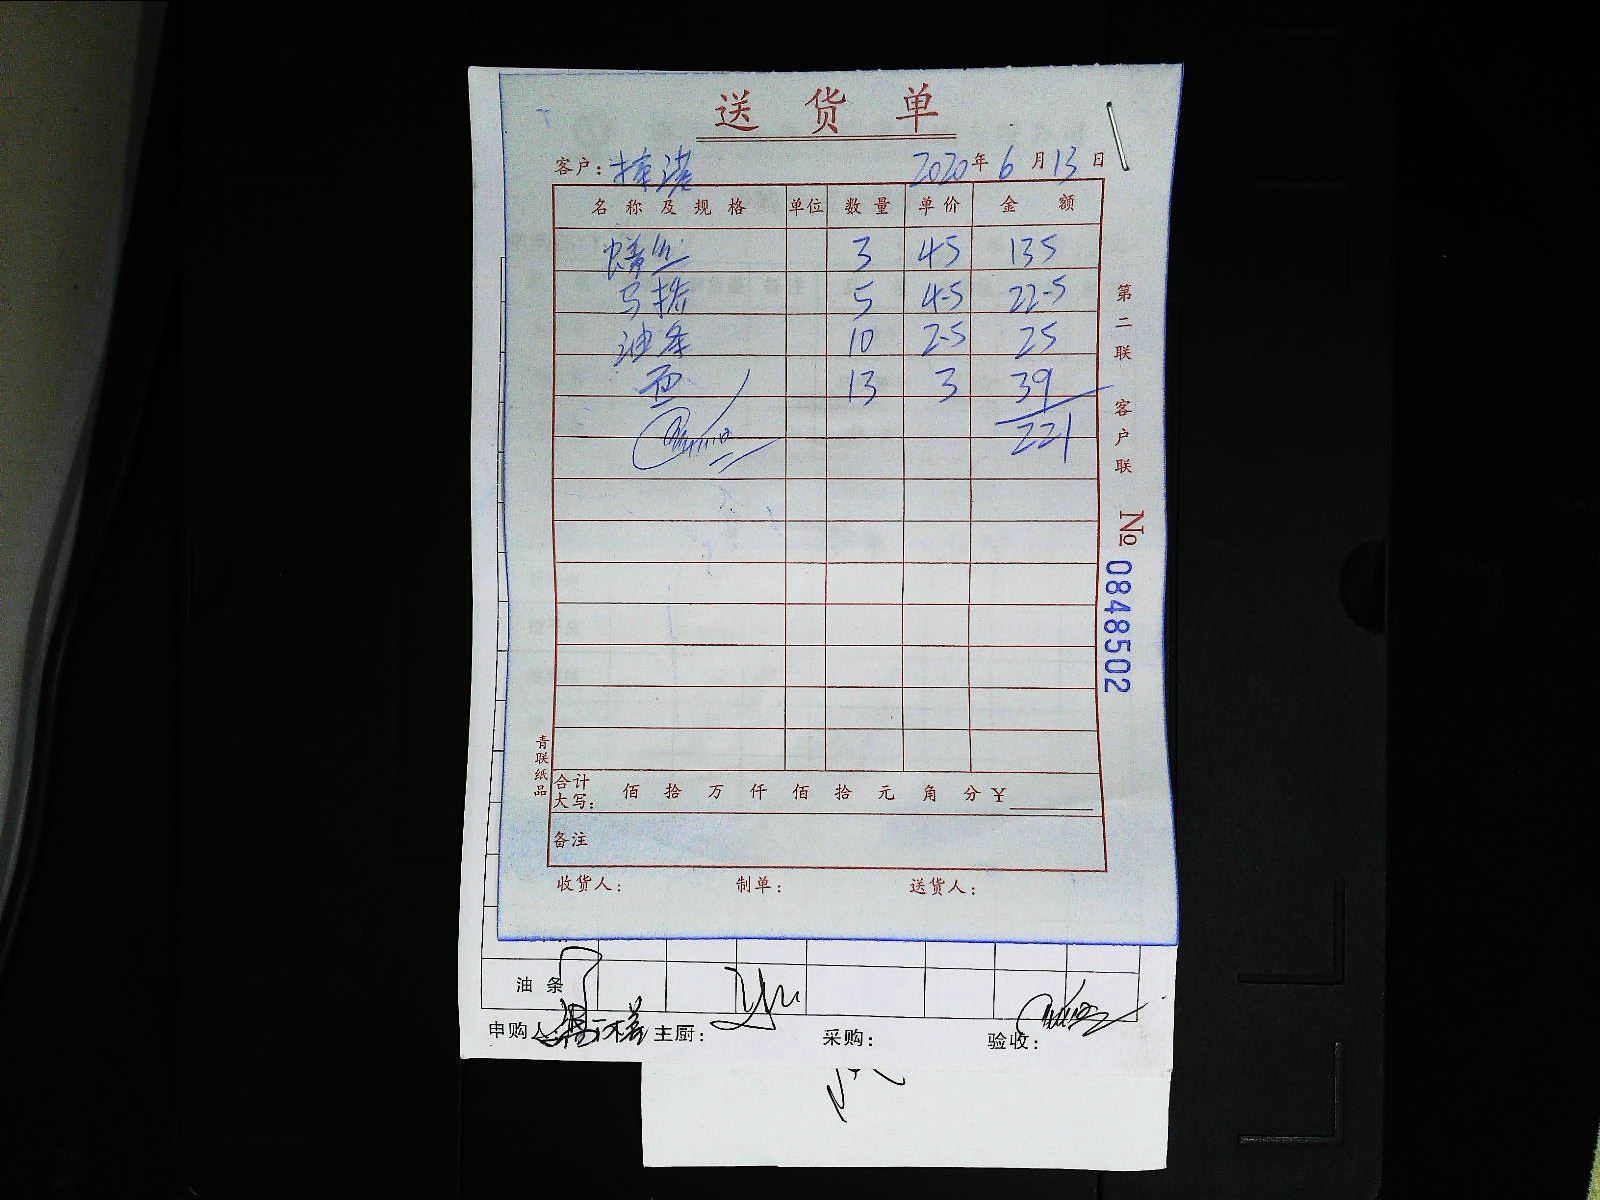 送货单
客户： 2020年6月13日
名称及规格 单位 数量 单价 金额
鳝丝 3 45 135
马桥 5 4.5 22.5
油条 10 2.5 25
面 13 3 39
221
第二联 客户联
№ 0848502
青联纸品
合计大写： 佰 拾 万 仟 佰 拾 元 角 分 ¥
备注
收货人： 制单： 送货人：
油条
申购人： 主厨： 采购： 验收：